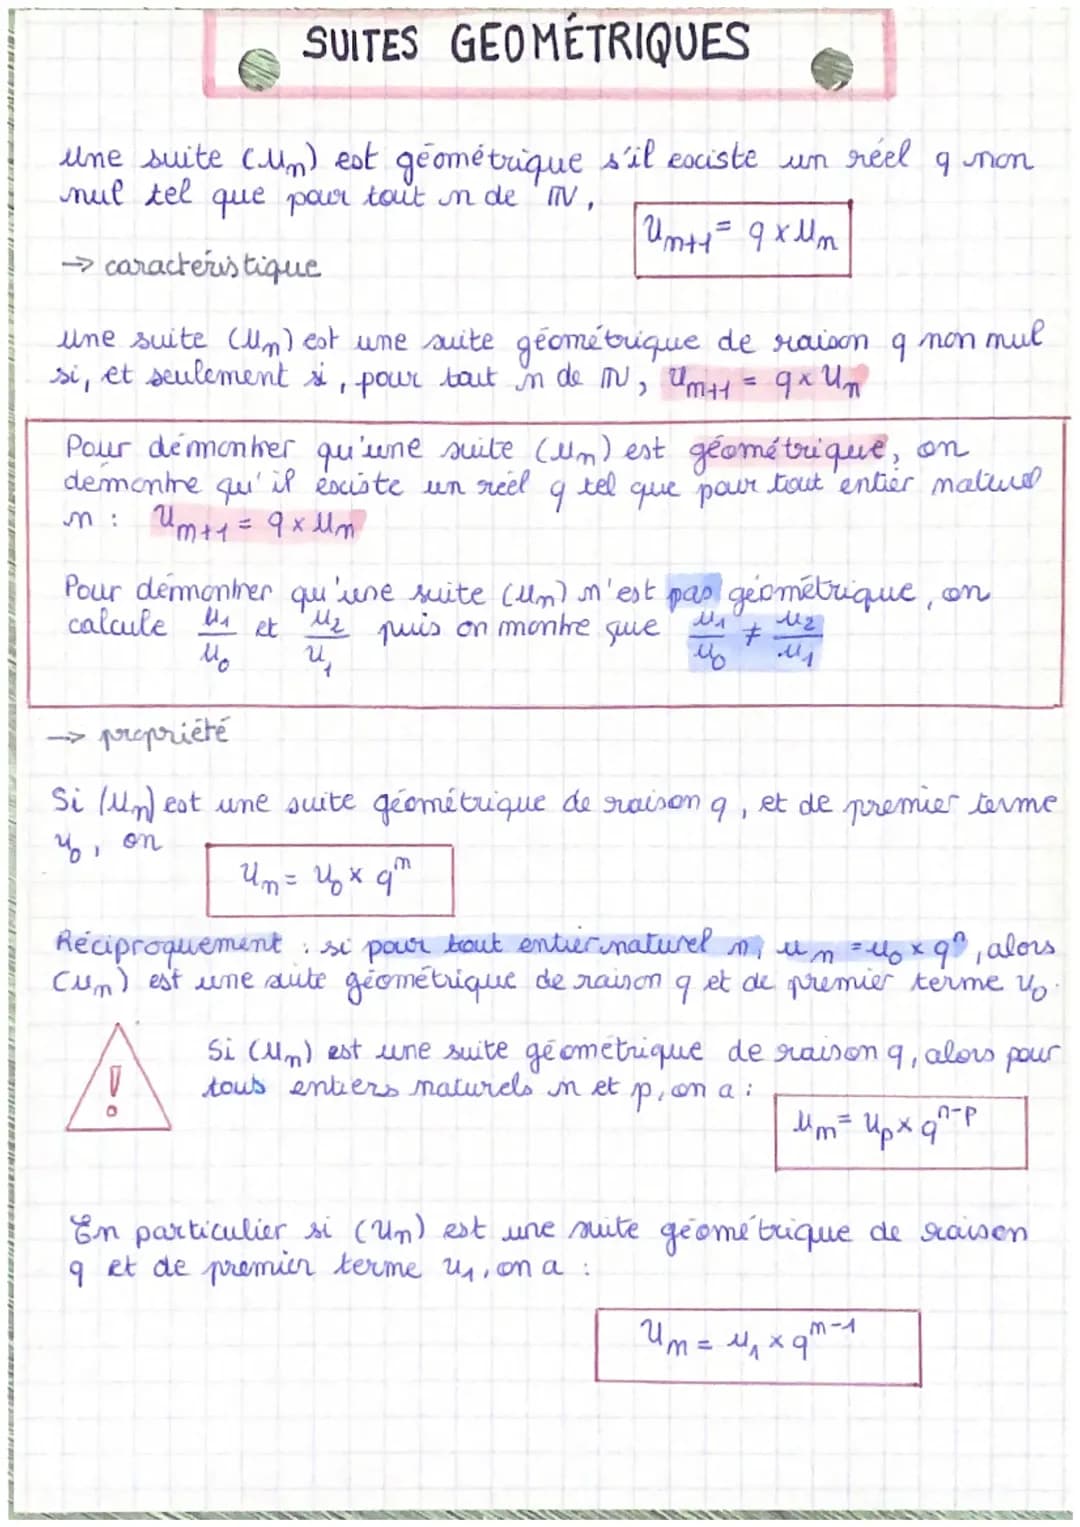 SUITES GEOMÉTRIQUES
Une suite (Un) est géométrique s'il existe un réel q non
nul tel que pour tout n de ℕ,
Un+1 = q × Un
→ caractéristique
Une suite (Un) est une suite géométrique de raison q non nul
si, et seulement si, pour tout n de ℕ, Un+1 = q × Un
Pour démontrer qu'une suite (un) est géométrique, on
démontre qu'il existe un réel q tel que pour tout entier naturel
n : Un+1 = q × Un
Pour démontrer qu'une suite (un) n'est pas géométrique, on
calcule u1/u0 et u2/u1 puis on montre que u1/u0 ≠ u2/u1
→ propriété
Si (Un) est une suite géométrique de raison q, et de premier terme
u0, on
Un = U0 × qⁿ
Réciproquement : si pour tout entier naturel n, un = u0 × qⁿ, alors
(un) est une suite géométrique de raison q et de premier terme u0.
Si (Un) est une suite géométrique de raison q, alors pour
tous entiers naturels n et p, on a :
!
Un = Up × qⁿ⁻ᵖ
En particulier si (Un) est une suite géométrique de raison
q et de premier terme u1, on a :
Un = u1 × qⁿ⁻¹